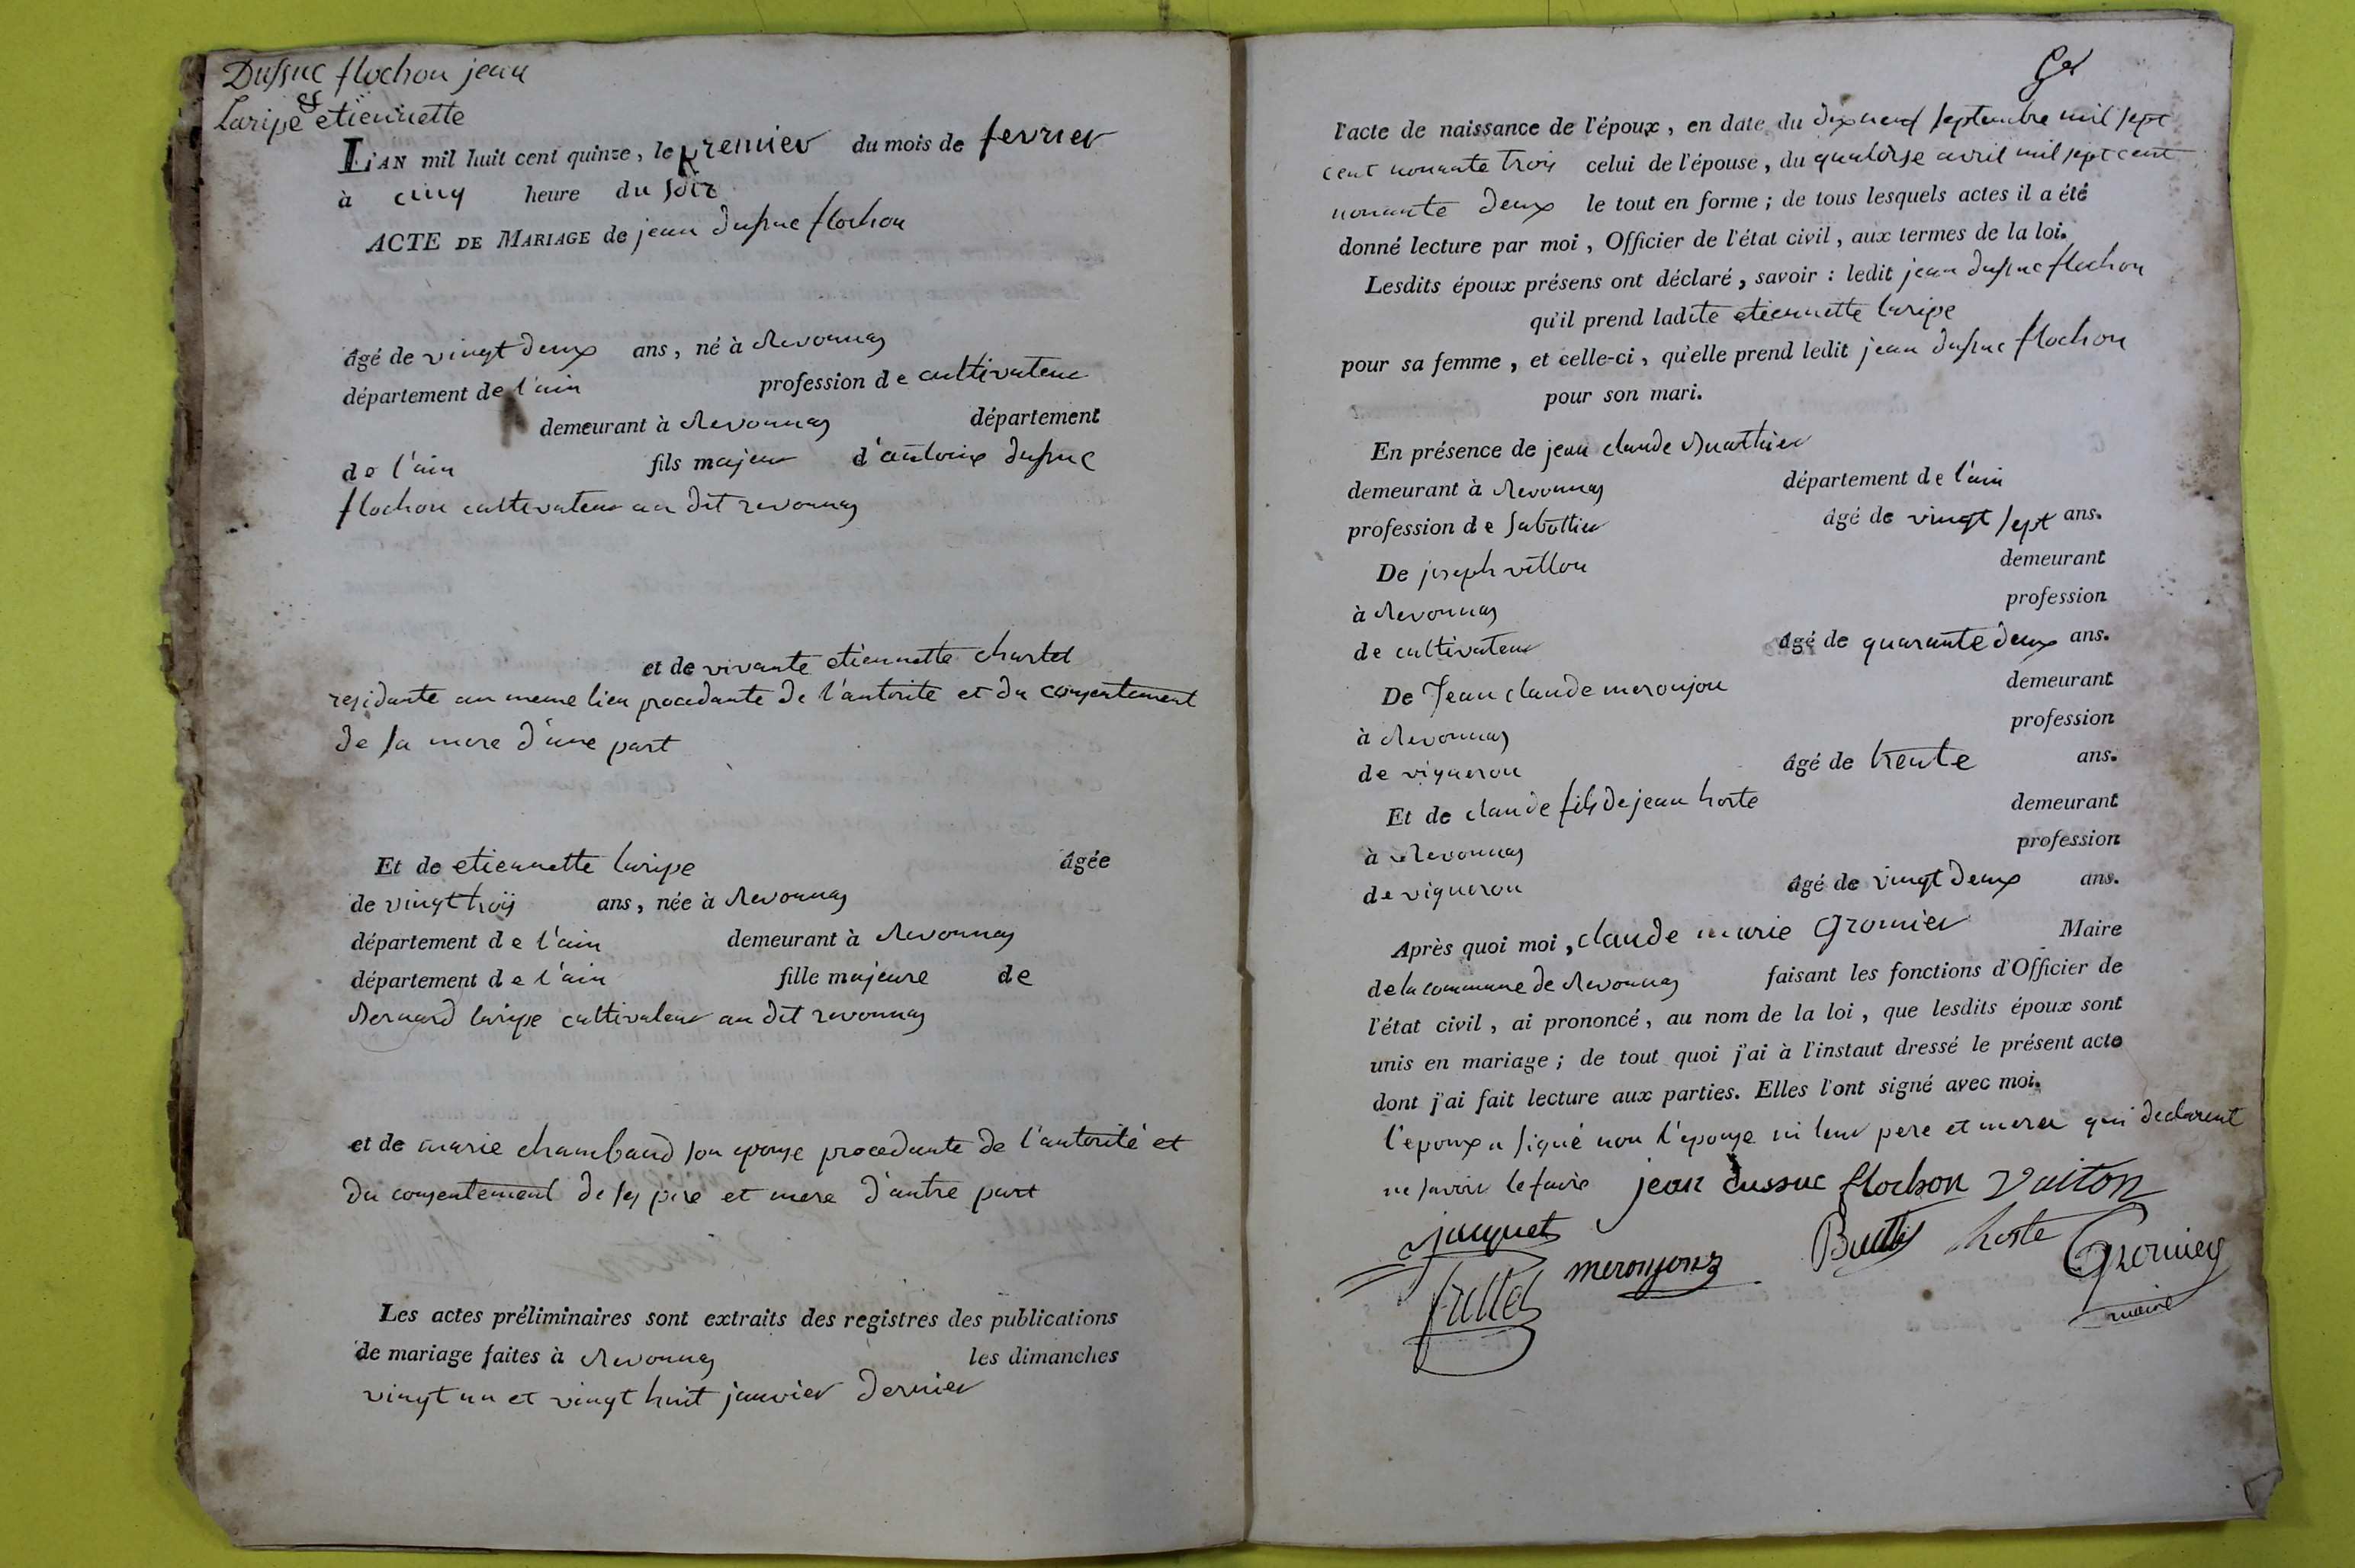 Dussuc flochon jean
&
Laripe etiennette
L'AN mil huit cent quinze, le premier du mois de fevrier
à cinq heure du soir
ACTE DE MARIAGE de jean dussuc flochon
âgé de vingt deux ans, né à Revonnas
département de l'ain profession de cultivateur
demeurant à Revonnas département
de l'ain fils majeur d'antoine dussuc
flochon cultivateur au dit revonnas
et de vivante etiennette chartel
residante au meme lieu procedante de l'autorite et du consentement
de sa mere d'une part
Et de etiennette laripe âgée
de vingt trois ans, née à Revonnas
département de l'ain demeurant à Revonnas
département de l'ain fille majeure de
Bernard laripe cultivateur au dit revonnas
et de marie chambaud son epouse procedante de l'autorité et
du consentement de ses pere et mere d'autre part
Les actes préliminaires sont extraits des registres des publications
de mariage faites à Revonnas les dimanches
vingt un et vingt huit janvier dernier
l'acte de naissance de l'époux, en date du dixneuf septembre mil sept
cent nonante trois celui de l'épouse, du quatorse avril mil sept cent
nonante deux le tout en forme; de tous lesquels actes il a été
donné lecture par moi, Officier de l'état civil, aux termes de la loi.
Lesdits époux présens ont déclaré, savoir : ledit jean dussuc flochon
qu'il prend ladite etiennette laripe
pour sa femme, et celle-ci, qu'elle prend ledit jean dussuc flochon
pour son mari.
En présence de jean claude Mathier
demeurant à Revonnas département de l'ain
profession de sabottier âgé de vingt sept ans.
De joseph vitton demeurant
à Revonnas profession
de cultivateur âgé de quarante deux ans.
De Jean claude meronjon demeurant
à Revonnas profession
de vigneron âgé de trente ans.
Et de claude fils de jean hoste demeurant
à Revonnas profession
de vigneron âgé de vingt deux ans.
Après quoi moi, claude marie Gromier Maire
de la commune de Revonnas faisant les fonctions d'Officier de
l'état civil, ai prononcé, au nom de la loi, que lesdits époux sont
unis en mariage; de tout quoi j'ai à l'instaut dressé le présent acte
dont j'ai fait lecture aux parties. Elles l'ont signé avec moi.
l'epoux a signé non l'epouse ni leur pere et meres qui declarent
ne savoir le faire jean dussuc flochon Vuiton
jacquet meronjon hoste Gromier
maire